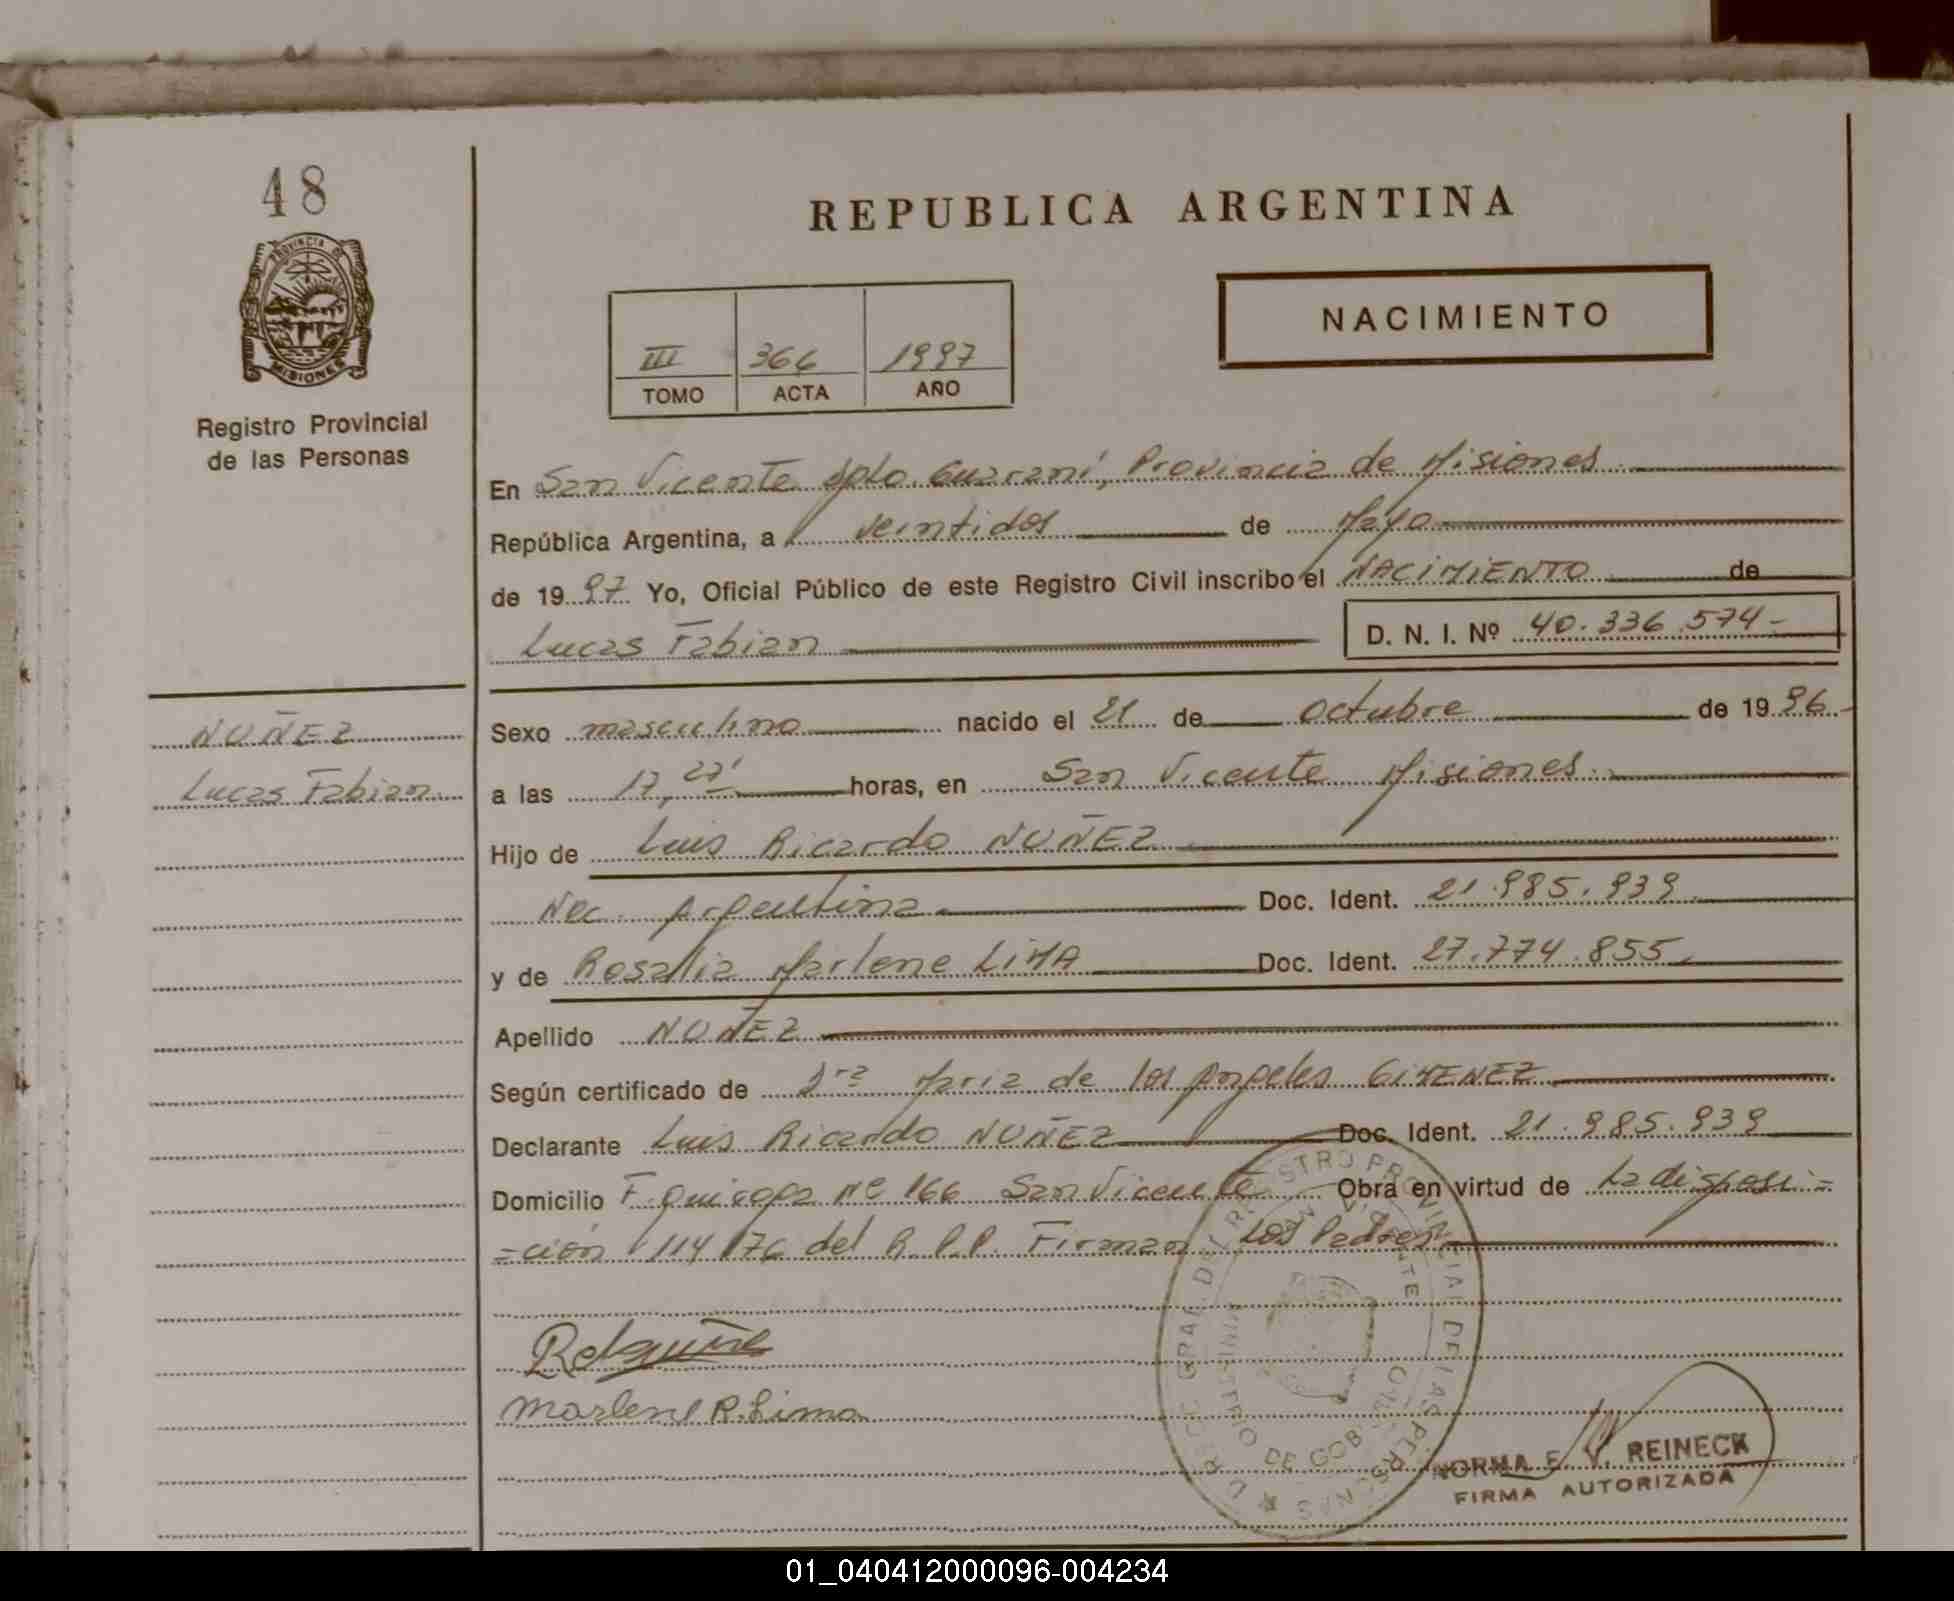 48
PROVINCIA DE
MISIONES
Registro Provincial
de las Personas
REPUBLICA ARGENTINA
NACIMIENTO
III 366 1997
TOMO ACTA AÑO
En San Vicente dpto. Guaraní, Provincia de Misiones
República Argentina, a veintidos de Mayo
de 1997 Yo, Oficial Público de este Registro Civil inscribo el NACIMIENTO de
Lucas Fabian D. N. I. Nº 40.336.574-
NUÑEZ
Lucas Fabian
Sexo masculino nacido el 21 de octubre de 1996.-
a las 17,27' horas, en San Vicente Misiones.
Hijo de Luis Ricardo NUÑEZ
Nac. Argentina Doc. Ident. 21.985.939
y de Rosalia Marlene LIMA Doc. Ident. 27.774.855.
Apellido NUÑEZ
Según certificado de Dra Maria de los Angeles GIMENEZ
Declarante Luis Ricardo NUÑEZ Doc. Ident. 21.985.939
Domicilio F. Quiroga Nº 166 San Vicente Obra en virtud de La disposi=
=ción 114/76 del R.P.P. Firman Los Padres
Marlene R. Lima
NORMA E. V. REINECK
FIRMA AUTORIZADA
01_040412000096-004234